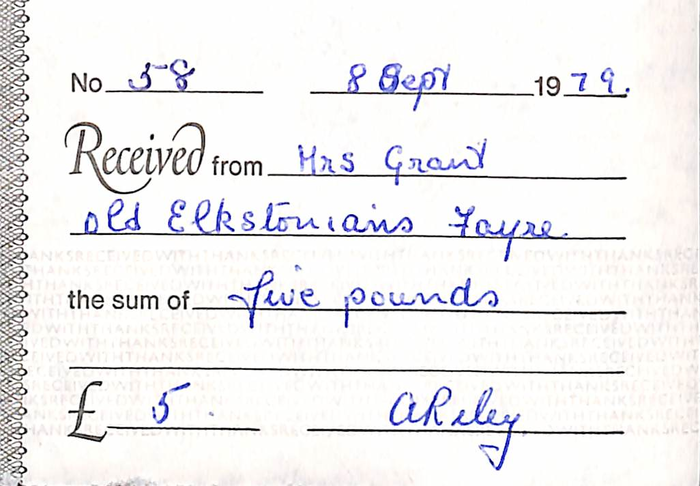 No 58 8 Sept 1979.
Received from Mrs Grant
Old Elkstonians Fayre.
the sum of five pounds
£ 5. ARiley